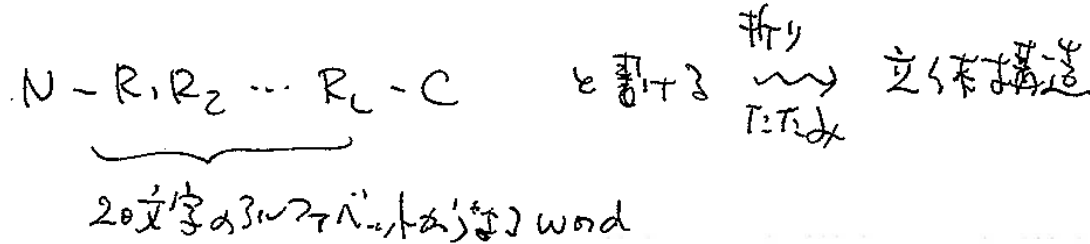 N - R₁R₂ … R_L - C と書ける 折りたたみ ⇝ 立体構造
20文字のアルファベットからなる word